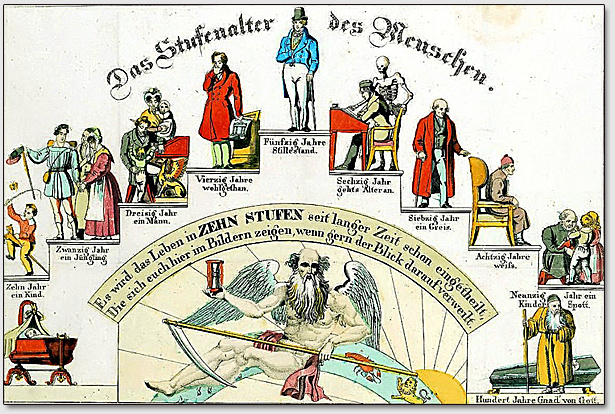 Das Stufenalter des Menschen.
Zehn Jahr
ein Kind.
Zwanzig Jahr
ein Jüngling
Dreisig Jahr
ein Mann.
Vierzig Jahre
wohlgethan.
Fünfzig Jahre
Stillestand.
Sechzig Jahr
gehts Alter an.
Siebzig Jahr
ein Greis.
Achtzig Jahre
weifs.
Neunzig Jahr ein
Kinder Spott.
Hundert Jahre Gnad' von Gott.
Es wird das Leben in ZEHN STUFEN seit langer Zeit schon eingetheilt,
Die sich euch hier im Bildern zeigen, wenn gern der Blick darauf verweilt.